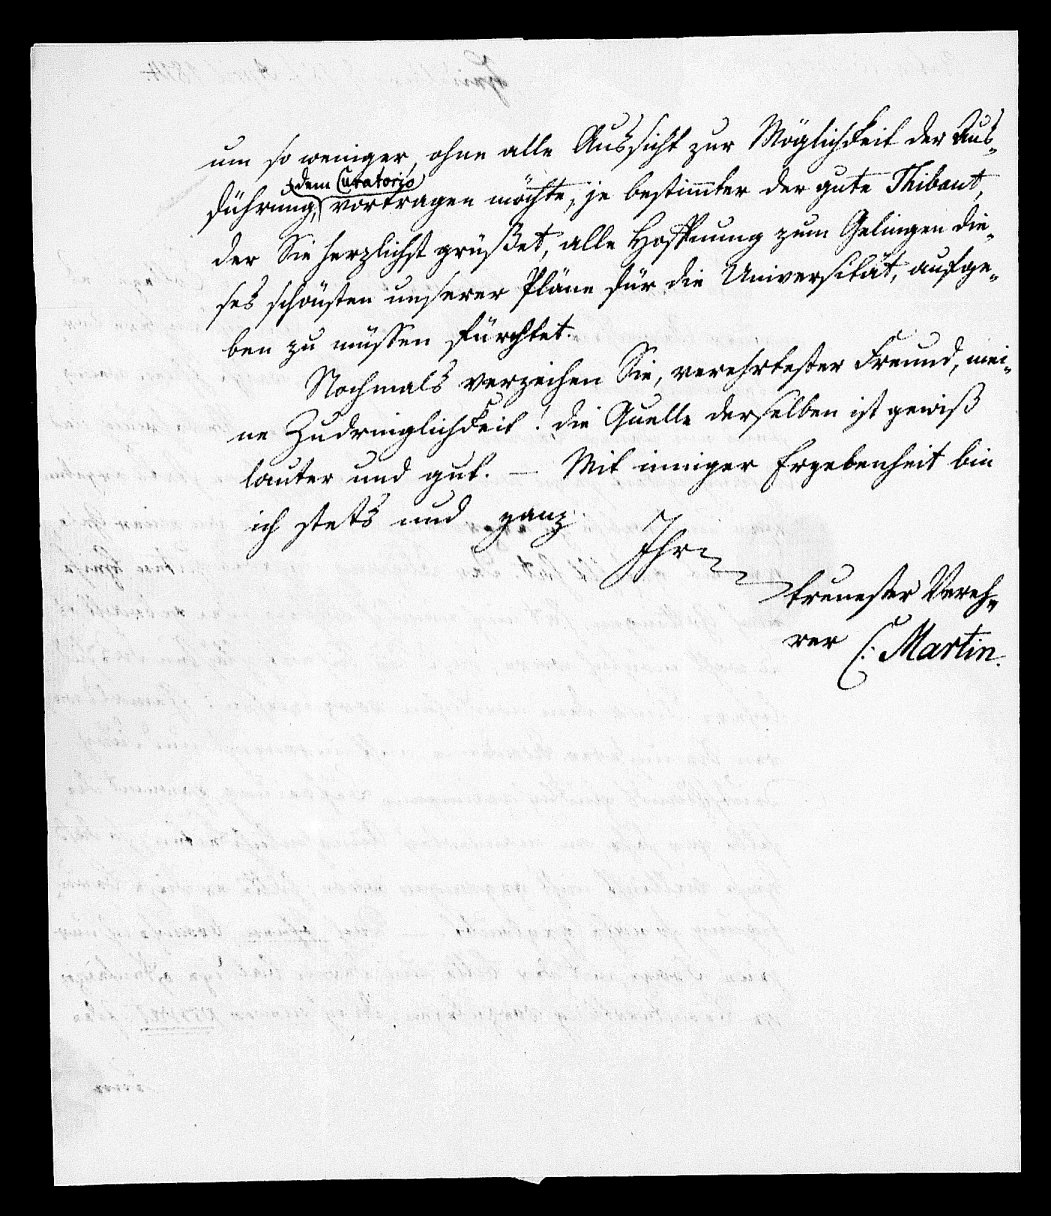 um so weniger, ohne alle Aussicht zur Möglichkeit der Aus-
dem Curatorio
führung, vortragen möchte, je bestimmter der gute Thibaut,
der Sie herzlichst grüßet, alle Hoffnung zum Gelingen die-
ses schönsten unserer Pläne für die Universität, aufge-
ben zu müssen fürchtet.
Nochmals verzeihen Sie, verehrtester Freund, mei-
ne Zudringlichkeit! die Quelle derselben ist gewiß
lauter und gut. — Mit inniger Ergebenheit bin
ich stets und ganz
Ihr
treuester Vereh-
rer C. Martin.